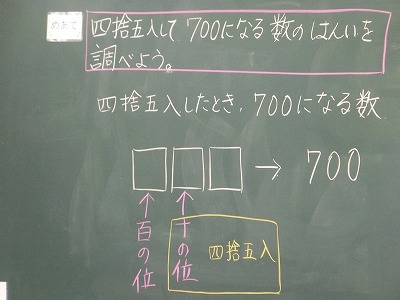 めあて
四捨五入して700になる数のはんいを
調べよう。
四捨五入したとき,700になる数
□□□→700
↑百の位
↑十の位
四捨五入